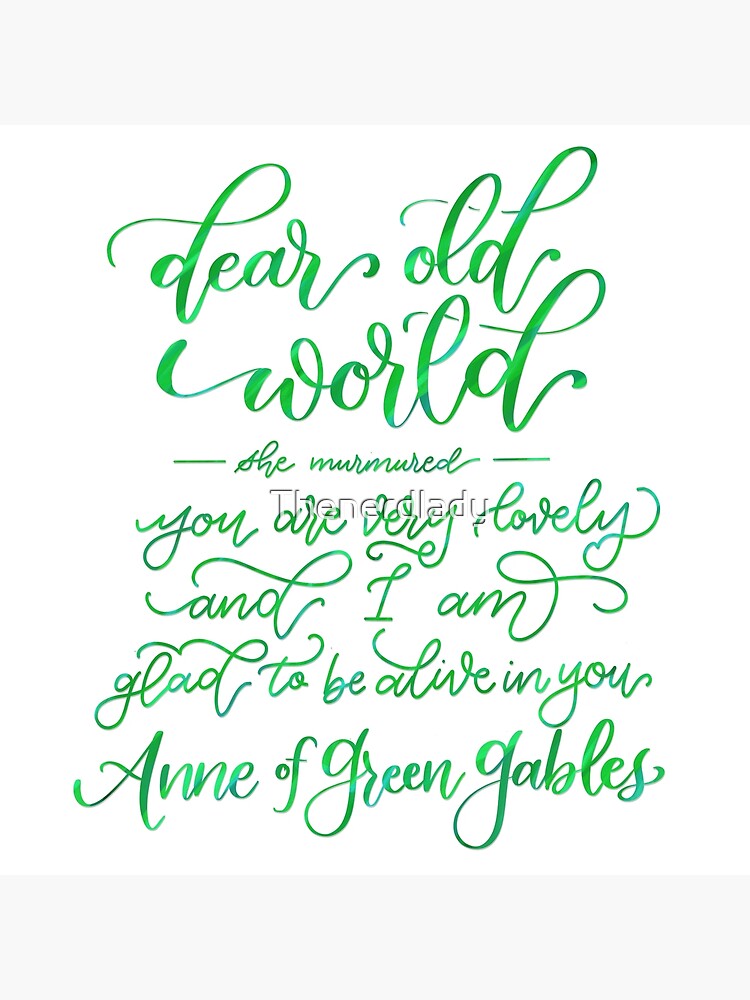 dear old
world
she murmured
Thenerdlady
you are very lovely
and I am
glad to be alive in you
Anne of green gables